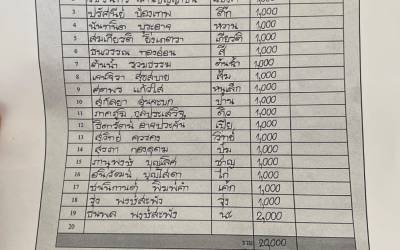 3 ปรัศนีย์ ป้องเทพ ตึ๊ก 1,000
4 นันทนิต ประอาจ หวาน 1,000
5 สมเกียรติ ยิ่งเกตรวา เกียรติ 1,000
6 ธนวรรณ ทองอ่อน สี 1,000
7 ต้นน้ำ รวมธรรม ต้นน้ำ 1,000
8 เจนจิรา สุขสบาย ส้ม 1,000
9 แก้วใส หนูเล็ก 1,000
10 สุกัลยา ป่าน 1,000
11 ติว 1,000
12 ธิดารัตน์ อาจประจัน เปีย 1,000
13 สุวิทย์ ควรคง วิทย์ 1,000
14 สรดา ทองอุดม ปุ้ม 1,000
15 ภานุพงษ์ บุญเลิศ ชาญ 1,000
16 ธนวัฒน์ บุญไสดา ไก่ 1,000
17 ชนนิกานต์ พิมพ์คำ เค้ก 1,000
18 จุ่ง พงษ์สะพัง จุ่ง 1,000
19 ธนพล พงษ์สะพัง นะ 2,000
20
รวม 20,000